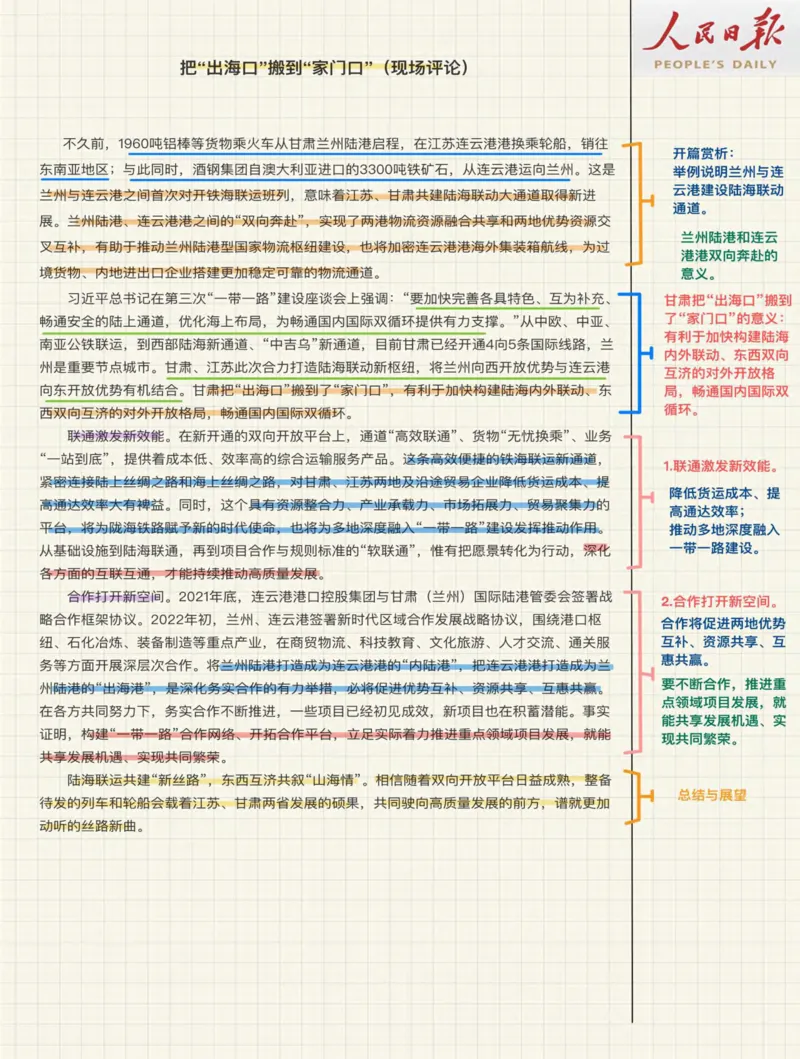 人民日报
PEOPLE'S DAILY
把“出海口”搬到“家门口”（现场评论）
不久前，1960吨铝棒等货物乘火车从甘肃兰州陆港启程，在江苏连云港港换乘轮船，销往
东南亚地区；与此同时，酒钢集团自澳大利亚进口的3300吨铁矿石，从连云港运向兰州。这是
兰州与连云港之间首次对开铁海联运班列，意味着江苏、甘肃共建陆海联动大通道取得新进
展。兰州陆港、连云港港之间的“双向奔赴”，实现了两港物流资源融合共享和两地优势资源交
叉互补，有助于推动兰州陆港型国家物流枢纽建设，也将加密连云港港海外集装箱航线，为过
境货物、内地进出口企业搭建更加稳定可靠的物流通道。
习近平总书记在第三次“一带一路”建设座谈会上强调：“要加快完善各具特色、互为补充、
畅通安全的陆上通道，优化海上布局，为畅通国内国际双循环提供有力支撑。”从中欧、中亚、
南亚公铁联运，到西部陆海新通道、“中吉乌”新通道，目前甘肃已经开通4向5条国际线路，兰
州是重要节点城市。甘肃、江苏此次合力打造陆海联动新枢纽，将兰州向西开放优势与连云港
向东开放优势有机结合。甘肃把“出海口”搬到了“家门口”，有利于加快构建陆海内外联动、东
西双向互济的对外开放格局，畅通国内国际双循环。
联通激发新效能。在新开通的双向开放平台上，通道“高效联通”、货物“无忧换乘”、业务
“一站到底”，提供着成本低、效率高的综合运输服务产品。这条高效便捷的铁海联运新通道，
紧密连接陆上丝绸之路和海上丝绸之路，对甘肃、江苏两地及沿途贸易企业降低货运成本、提
高通达效率大有裨益。同时，这个具有资源整合力、产业承载力、市场拓展力、贸易聚集力的
平台，将为陇海铁路赋予新的时代使命，也将为多地深度融入“一带一路”建设发挥推动作用。
从基础设施到陆海联通，再到项目合作与规则标准的“软联通”，惟有把愿景转化为行动，深化
各方面的互联互通，才能持续推动高质量发展。
合作打开新空间。2021年底，连云港港口控股集团与甘肃（兰州）国际陆港管委会签署战
略合作框架协议。2022年初，兰州、连云港签署新时代区域合作发展战略协议，围绕港口枢
纽、石化冶炼、装备制造等重点产业，在商贸物流、科技教育、文化旅游、人才交流、通关服
务等方面开展深层次合作。将兰州陆港打造成为连云港港的“内陆港”，把连云港港打造成为兰
州陆港的“出海港”，是深化务实合作的有力举措，必将促进优势互补、资源共享、互惠共赢。
在各方共同努力下，务实合作不断推进，一些项目已经初见成效，新项目也在积蓄潜能。事实
证明，构建“一带一路”合作网络、开拓合作平台，立足实际着力推进重点领域项目发展，就能
共享发展机遇、实现共同繁荣。
陆海联运共建“新丝路”，东西互济共叙“山海情”。相信随着双向开放平台日益成熟，整备
待发的列车和轮船会载着江苏、甘肃两省发展的硕果，共同驶向高质量发展的前方，谱就更加
动听的丝路新曲。
开篇赏析：
举例说明兰州与连
云港建设陆海联动
通道。
兰州陆港和连云
港港双向奔赴的
意义。
甘肃把“出海口”搬到
了“家门口”的意义：
有利于加快构建陆海
内外联动、东西双向
互济的对外开放格
局，畅通国内国际双
循环。
1.联通激发新效能。
降低货运成本、提
高通达效率；
推动多地深度融入
一带一路建设。
2.合作打开新空间。
合作将促进两地优势
互补、资源共享、互
惠共赢。
要不断合作，推进重
点领域项目发展，就
能共享发展机遇、实
现共同繁荣。
总结与展望